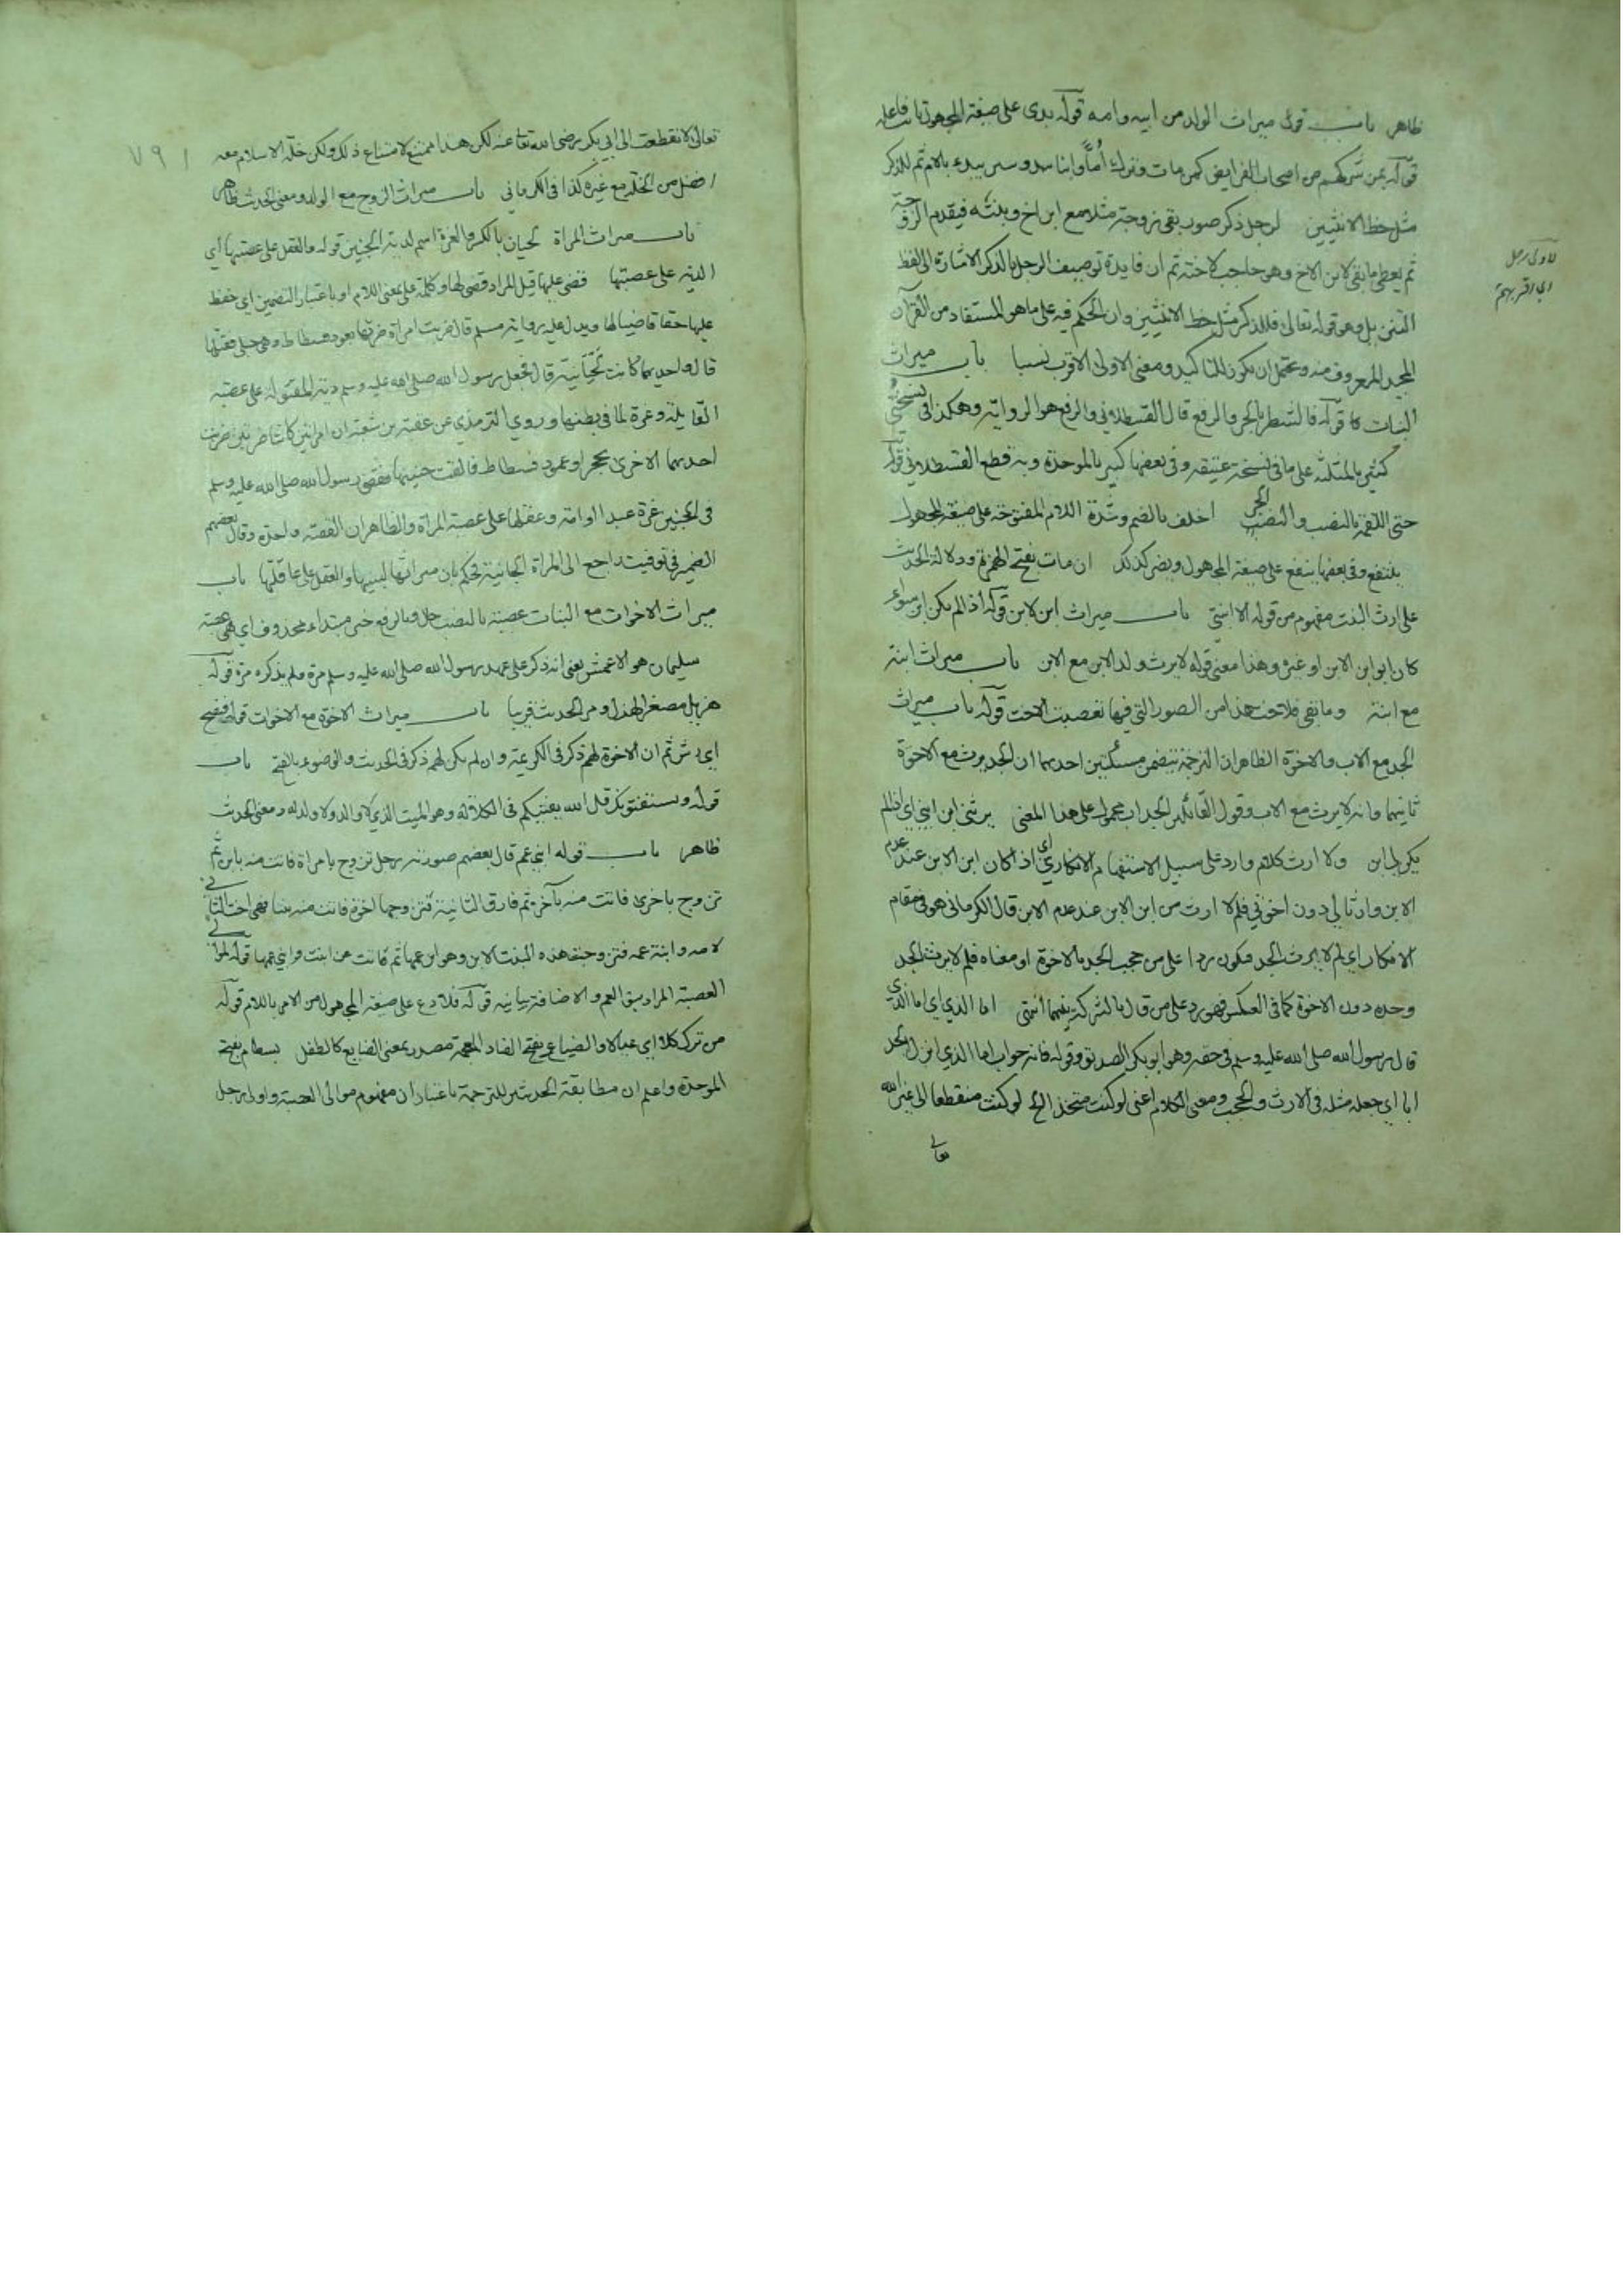 ظاهر باب قوله ميراث الولد من ابيه وامه قوله بدى على صيغة المجهول نائب فاعله
قوله بمن شركهم من اصحاب الفرايض كمن مات وترك أُمًّا وابنا يبدء بالام ثم للذكر
مثل حظ الانثيين لرجل ذكر صورته زوجة مثلا مع ابن اخ وبنته فيقدم الزوجة
ثم يعطى ما بقى لابن الاخ وهو حاجب لاخته ثم ان فايدة توصيف الرجل بالذكر الاشارة الى لفظ
لاولى رجل
اي اقربهم
المتن بل وهو قوله تعالى فللذكر مثل حظ الانثيين وان الحكم فيه على ما هو المستفاد من القرآن
المجيد المعروف منه ويحتمل ان يكون للتاكيد ومعنى الاولى الاقرب نسبا باب ميراث
البنات قوله فالشطر بالجر والرفع قال القسطلاني والرفع هو الرواية وهكذا في نسختي
كثير بالمثلثة على ما في نسخة عتيقة وفي بعضها كبير بالموحدة وبه قطع القسطلاني قوله
حتى اللقمة بالنصب والنصب الجر اخلف بالضم وشدة اللام المفتوحة على صيغة المجهول
ينتفع وفي بعضها ينفع على صيغة المجهول ويضر كذلك ان مات بفتح الهمزة ودلالة الحديث
على ارث البنت مفهوم من قوله الا ابنتي باب ميراث ابن الابن قوله اذا لم يكن ابن سواء
كان ابو ابن الابن او غيره وهذا معنى قوله لا يرث ولد الابن مع الابن باب ميراث ابنة
مع ابنة وما بقى فللاخت هذا من الصور التي فيها تعصيب الاخت قوله باب ميراث
الجد مع الاب والاخوة الظاهر ان الترجمة تتضمن مسئلتين احديهما ان الجد يرث مع الاخوة
ثانيتهما وانه لا يرث مع الاب وقول القائل الجد اب محمول على هذا المعنى يرثني ابن ابني اي اذا لم
يكن لي ابن ولا ارث كلام وارد على سبيل الاستفهام الانكاري اي اذا كان ابن الابن عند عدم
الابن وارثا لي دون اخوتي فلم لا ارث من ابن الابن عند عدم الابن قال الكرماني هو في مقام
الانكار اي لم لا يرث الجد فيكون ردا على من حجب الجد بالاخوة او معناه فلم لا يرث الجد
وحده دون الاخوة كما في العكس فهو رد على من قال بالشركة بينهما انتهى اما الذي اي اما الذي
قال رسول الله صلى الله عليه وسلم في حقه وهو ابو بكر الصديق وقوله فانه جواب اما الذي انزل الجد
ابا اي جعله مثله في الارث والحجب ومعنى الكلام اعني لو كنت متخذ الخ لو كنت منقطعا الى غير الله
تعالى
٧٩١
تعالى لانقطعت الى ابي بكر رضى الله تعالى عنه لكن هذا ممتنع لامتناع ذلك ولكن خلة الاسلام معه
افضل من الخلة مع غيره كذا في الكرماني باب ميراث الزوج مع الولد ومعنى الحديث ظاهر
باب ميراث المراة لحيان بالكسر والغرة اسم لدية الجنين قوله والعقل على عصبتها اي
الدية على عصبتها قضى عليها قيل المراد قضى لها وكلمة على بمعنى اللام او باعتبار التضمين اي حفظ
عليها حقها قاضيا لها ويدل عليه رواية مسلم قال ضربت امراة ضرتها بعود فسطاط وهي حبلى فقتلتها
قال واحديهما كانت لحيانية قال فجعل رسول الله صلى الله عليه وسلم دية المقتولة على عصبة
القايلة وغرة لما في بطنها وروى الترمذي عن بن شعبة ان امراتين كانتا ضرتين ضربت
احديهما الاخرى بحجر او عمود فسطاط فالقت جنينها فقضى رسول الله صلى الله عليه وسلم
في الجنين غرة عبد او امة وعقلها على عصبة المراة والظاهر ان القصة واحدة وقال بعضهم
الضمير في توفيت راجع الى المراة الجانية فحكم بان ميراثها لبنيها والعقل على عاقلتها باب
ميراث الاخوات مع البنات عصبة بالنصب حال وبالرفع خبر مبتداء محذوف اي هي عصبة
سليمان هو الاعمش يعني انه ذكر على عهد رسول الله صلى الله عليه وسلم مرة ولم يذكره مرة قوله
هزيل مصغر الهذل ومر الحديث قريبا باب ميراث الاخوة مع الاخوات قوله فنضح
اي رش ثم ان الاخوة لهم ذكر في الكريمة وان لم يكن لهم ذكر في الحديث والوضوء بالفتح باب
قوله ويستفتونك قل الله يفتيكم في الكلالة وهو الميت الذي لا والد ولا ولد له ومعنى الحديث
ظاهر باب قوله ابني عم قال بعضهم صورته رجل تزوج بامراة فاتت منه بابن ثم
تزوج باخرى فاتت منه بآخر ثم فارق الثانية فتزوجها اخوه فاتت منه ببنت فهي اخت الثاني
لامه وابنة عمه فتزوجت هذه البنت الابن وهو ابن عمها ثم ماتت عن ابنت وابني عمها قوله لموالي
العصبة المراد بنو العم والاضافة بيانية قوله فلادع على صيغة المجهول من الامر باللام قوله
من ترك كلا اي عيالا والضياع بفتح الضاد المعجمة مصدر بمعنى الضايع كالطفل بسطام بفتح
الموحدة واعلم ان مطابقة الحديث للترجمة باعتبار ان مفهوم موالى العصبة واولى رجل